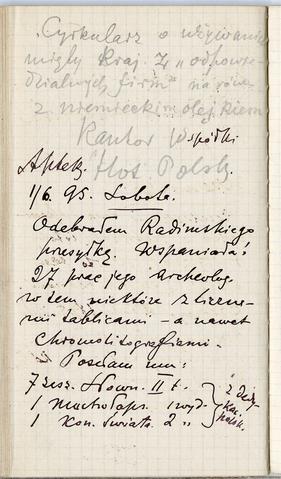 "Cyrkularz o używaniu
kraj. z "odpowie-
dzialnych firm" na rów-
z niemieckim olejkiem
Kantor Wspólki
Aptek. "Głos Polsk.
1/6. 95. Sobota.
Odebrałem Radimskiego
przesyłkę. Wspaniała!
27 prac jego archeolog.
w tem niektóre z liczne-
mi tablicami – a nawet
chromolitografiami.
Posłam mu:
7 zesz. Słown. II t.
1 1 wyd.
1 Kon. świata. 2 "
z dedy-
kac.
polsk.